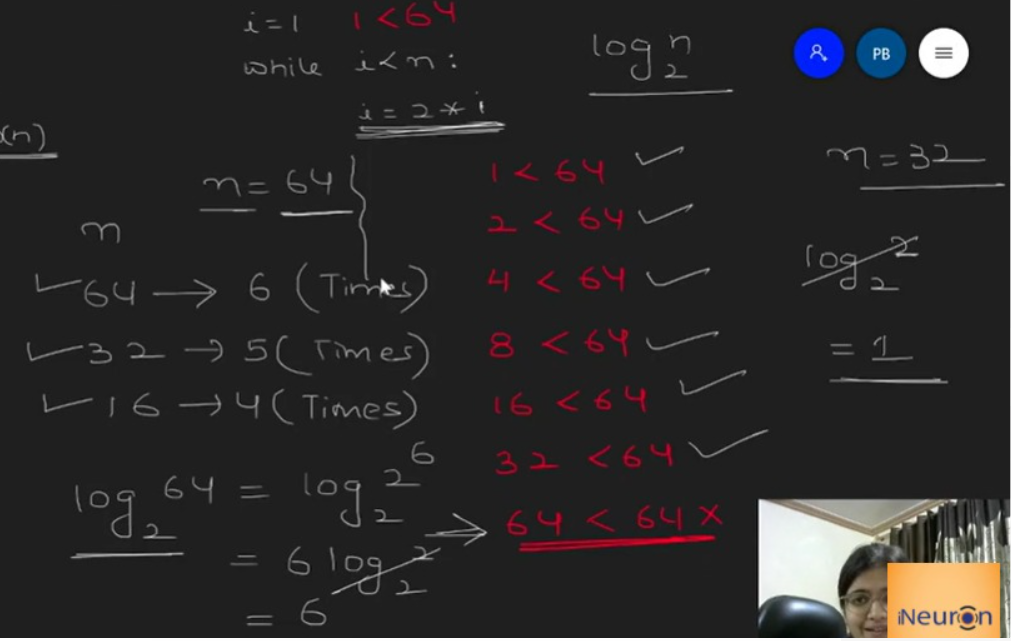 i=1 1<64
while i<n:
i = 2 * i
log₂ n
PB
(n)
n = 64
n
64 → 6 (Times)
32 → 5 (Times)
16 → 4 (Times)
log₂ 64 = log₂ 2⁶
= 6 log₂ 2
= 6
1 < 64
2 < 64
4 < 64
8 < 64
16 < 64
32 < 64
64 < 64 ×
n = 32
log₂ 2
= 1
iNeuron